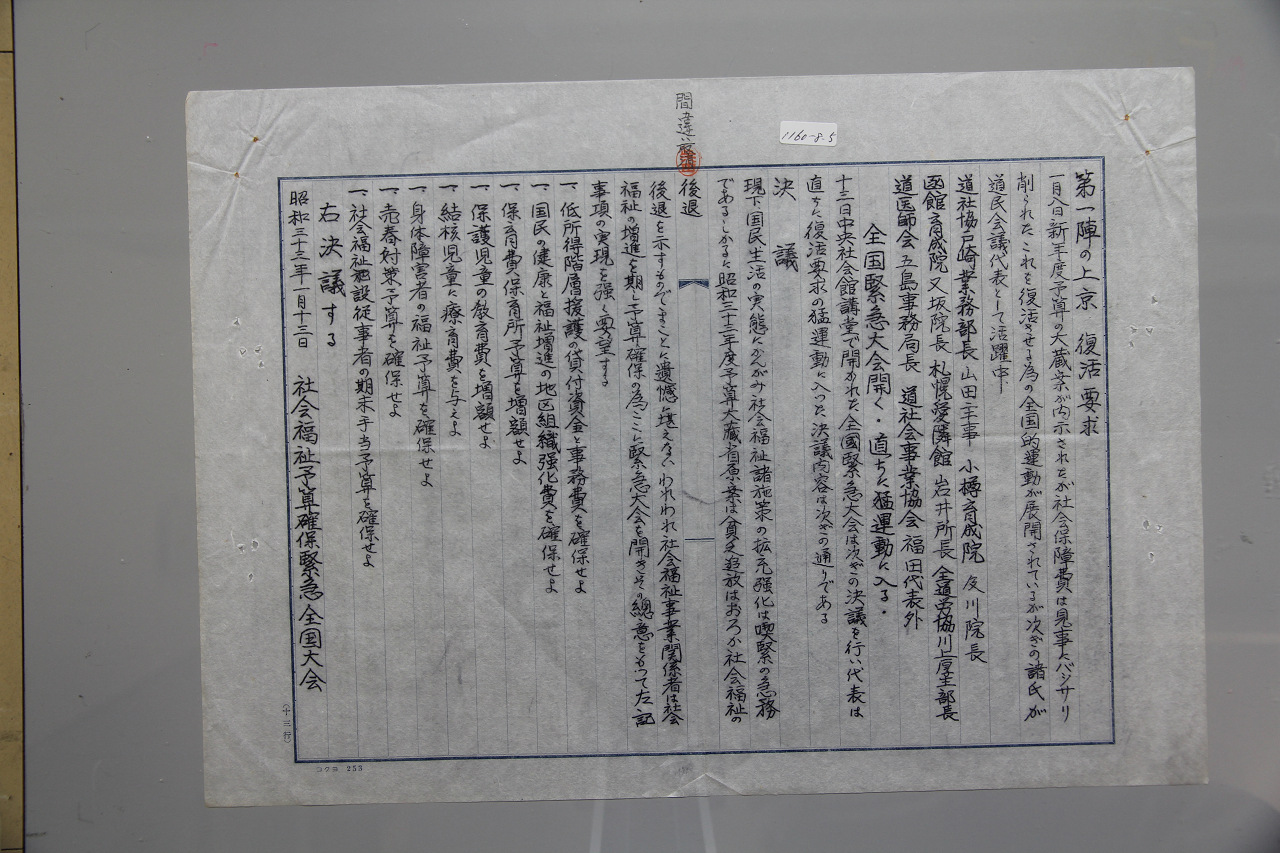 間違い
1160-8-5
第一陣の上京 復活要求
一月八日新年度予算の大蔵案が内示されたが社会保障費は見事にバッサリ
削られたこれを復活させる為の全国的運動が展開されているが次ぎの諸氏が
道民会議代表として活躍中
道社協戸崎業務部長 山田主事 小樽育成院 及川院長
函館育成院 又坂院長 札幌愛隣館 岩井所長 全道労協川上厚生部長
道医師会 五島事務局長 道社会事業協会 福田代表外
全国緊急大会開く・直ちに猛運動に入る・
十三日中央社会館講堂で開かれた全國緊急大会は次ぎの決議を行い代表は
直ちに復活要求の猛運動に入った決議内容は次ぎの通りである
決 議
現下国民生活の実態にかんがみ社会福祉諸施策の拡充強化は喫緊の急務
であるしかるに昭和三十三年度予算大蔵省原案は貧乏追放はおろか社会福祉の
後退
後退を示すものでまことに遺憾に堪えないわれわれ社会福祉事業関係者は社会
福祉の増進を期し予算確保の為ここに緊急大会を開きその総意をもって左記
事項の実現を強く要望する
一、低所得階層援護の貸付資金と事務費を確保せよ
一、国民の健康と福祉増進の地区組織強化費を確保せよ
一、保育費、保育所予算を増額せよ
一、保護児童の教育費を増額せよ
一、結核児童に療育費を与えよ
一、身体障害者の福祉予算を確保せよ
一、売春対策予算を確保せよ
一、社会福祉施設従事者の期末手当予算を確保せよ
右決議する
昭和三十三年一月十三日 社会福祉予算確保緊急全国大会
(十三行)
コクヨ 253